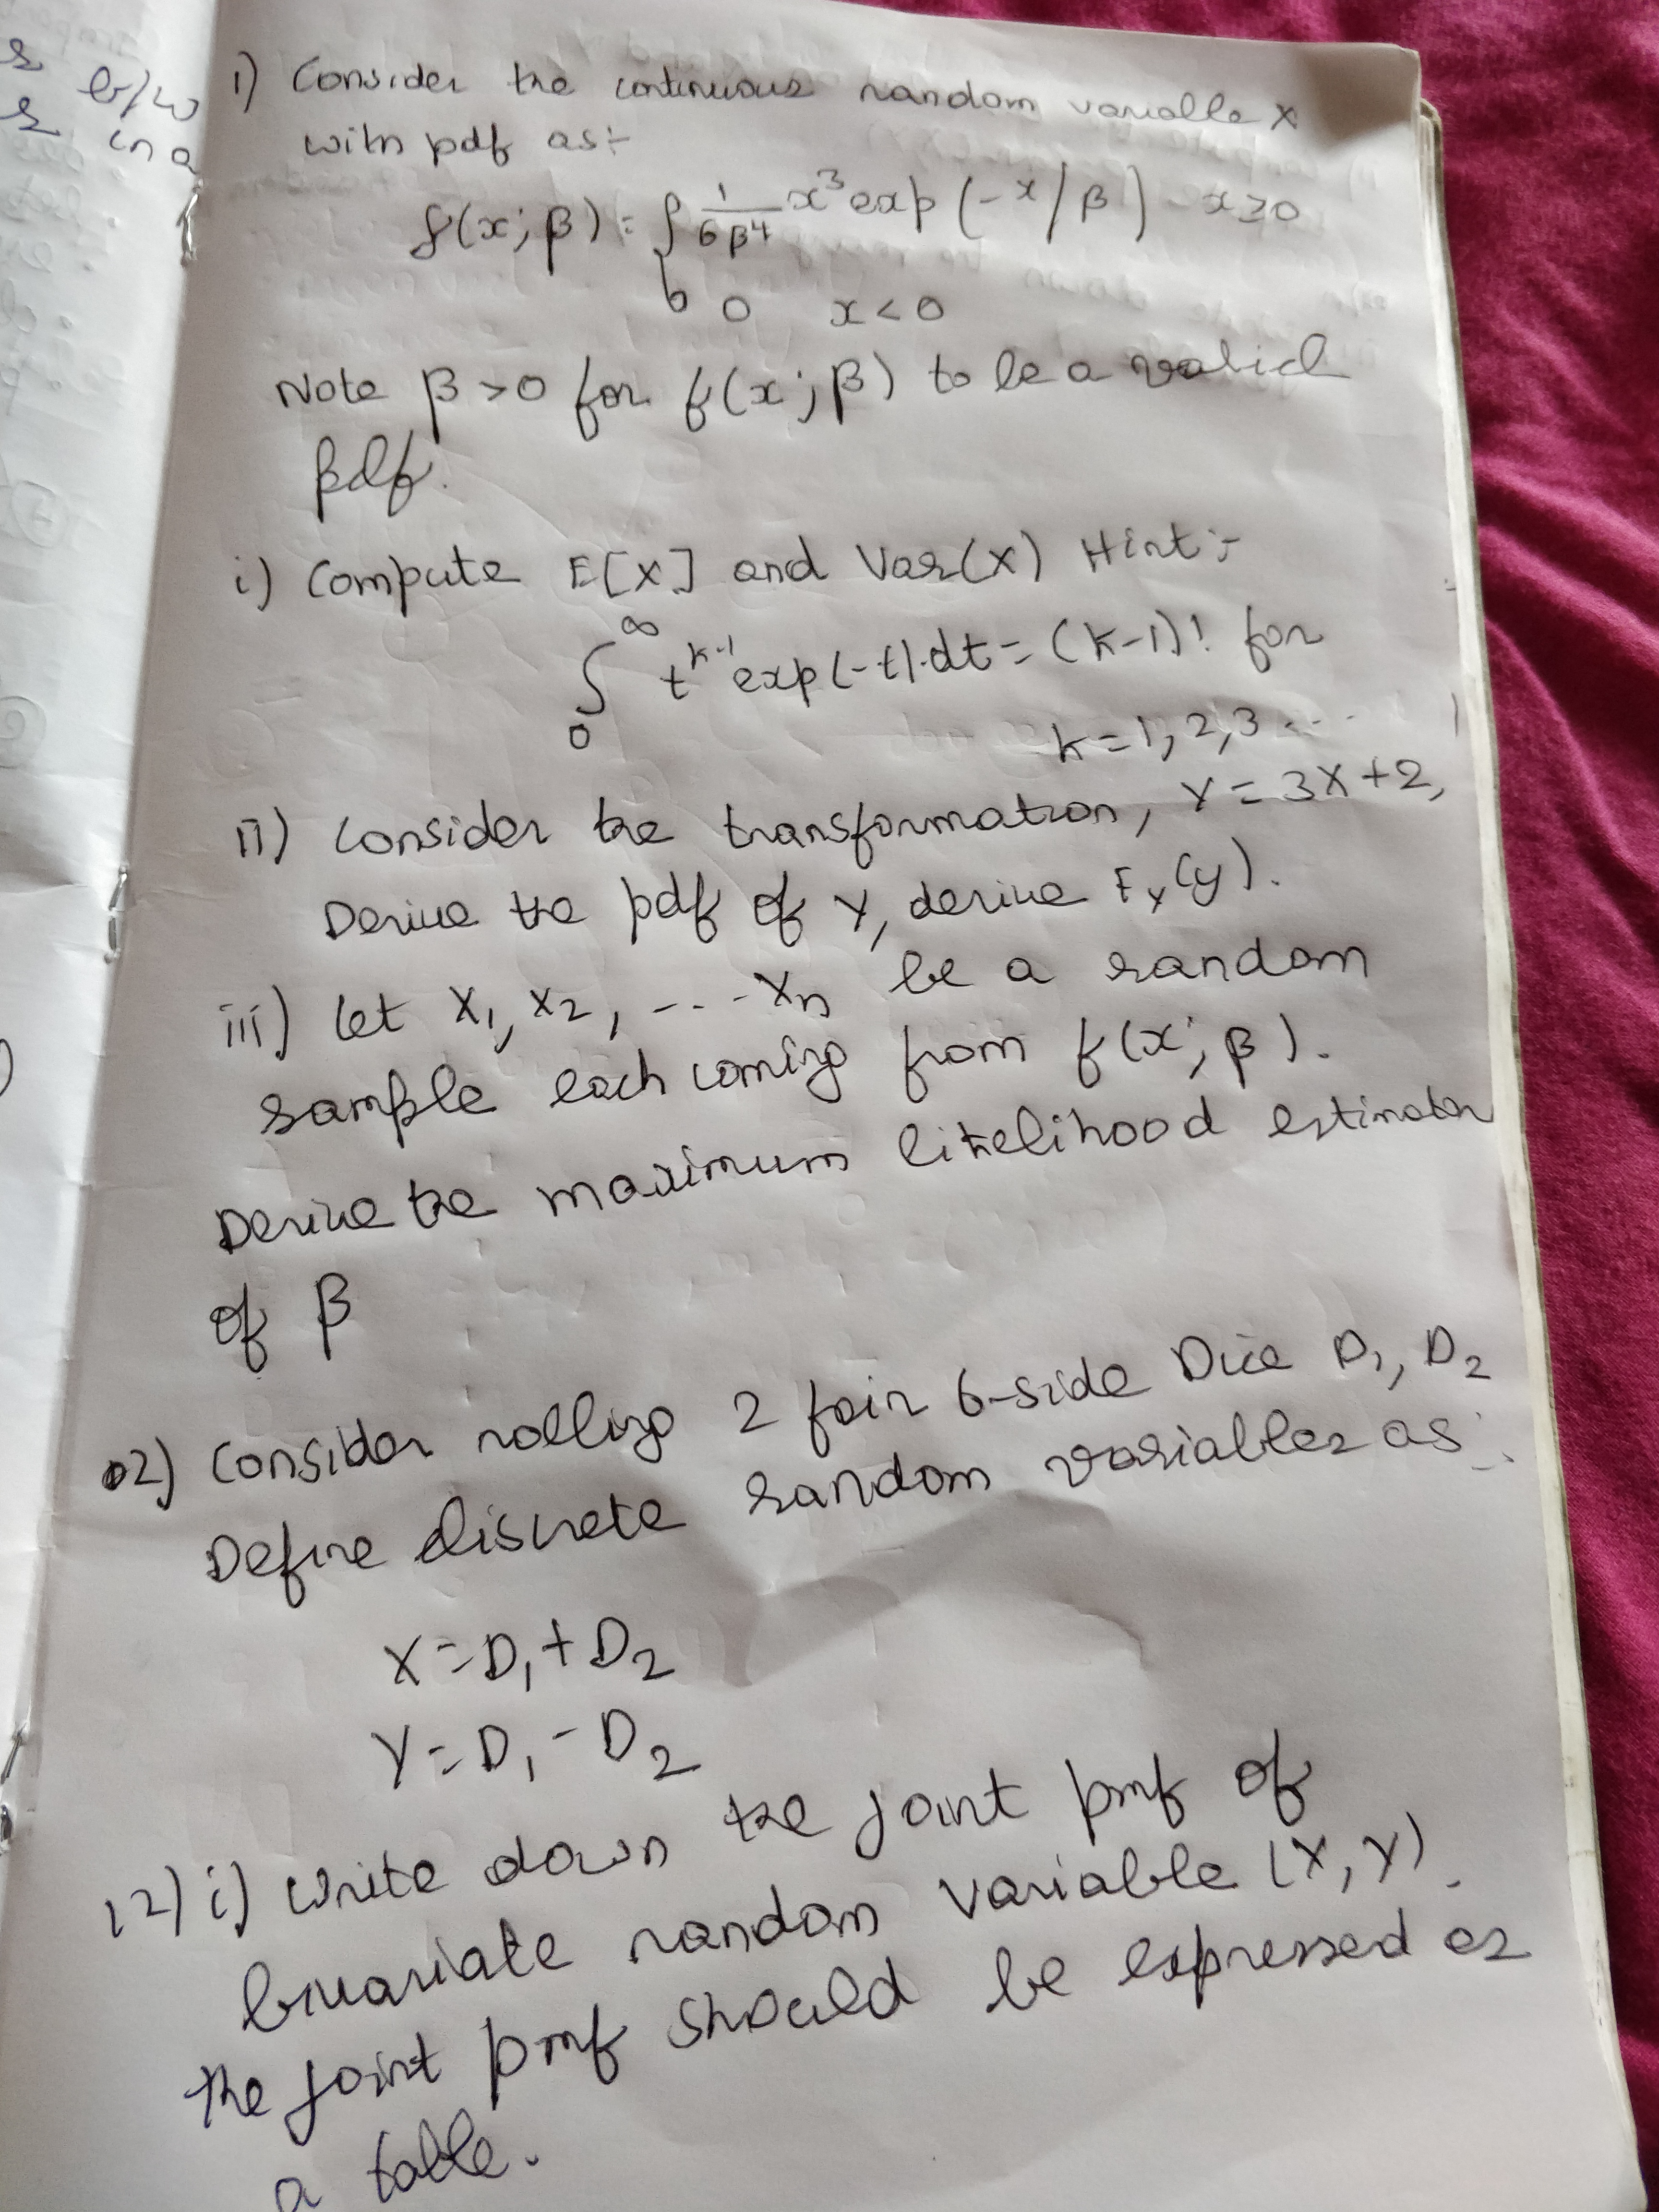 s b/w
s in a
1) Consider the continuous random variable X
with pdf as:-
f(x; β) = { 1/6β⁴ x³ exp (-x/β) x≥0
0 x<0
Note β>0 for f(x; β) to be a valid
pdf.
i) Compute E[X] and Var(X) Hint:-
∫₀^∞ t^(k-1) exp(-t).dt = (k-1)! for
k=1,2,3...
ii) Consider the transformation, Y = 3X+2,
Derive the pdf of Y, derive F_Y(y).
iii) Let X₁, X₂, ---- Xn be a random
sample each coming from f(x; β).
Derive the maximum likelihood estimator
of β
02) Consider rolling 2 fair 6-side Dice D₁, D₂
Define discrete random variables as:-
X = D₁ + D₂
Y = D₁ - D₂
12) i) Write down the joint pmf of
bivariate random variable (X, Y).
The joint pmf should be expressed as
a table.